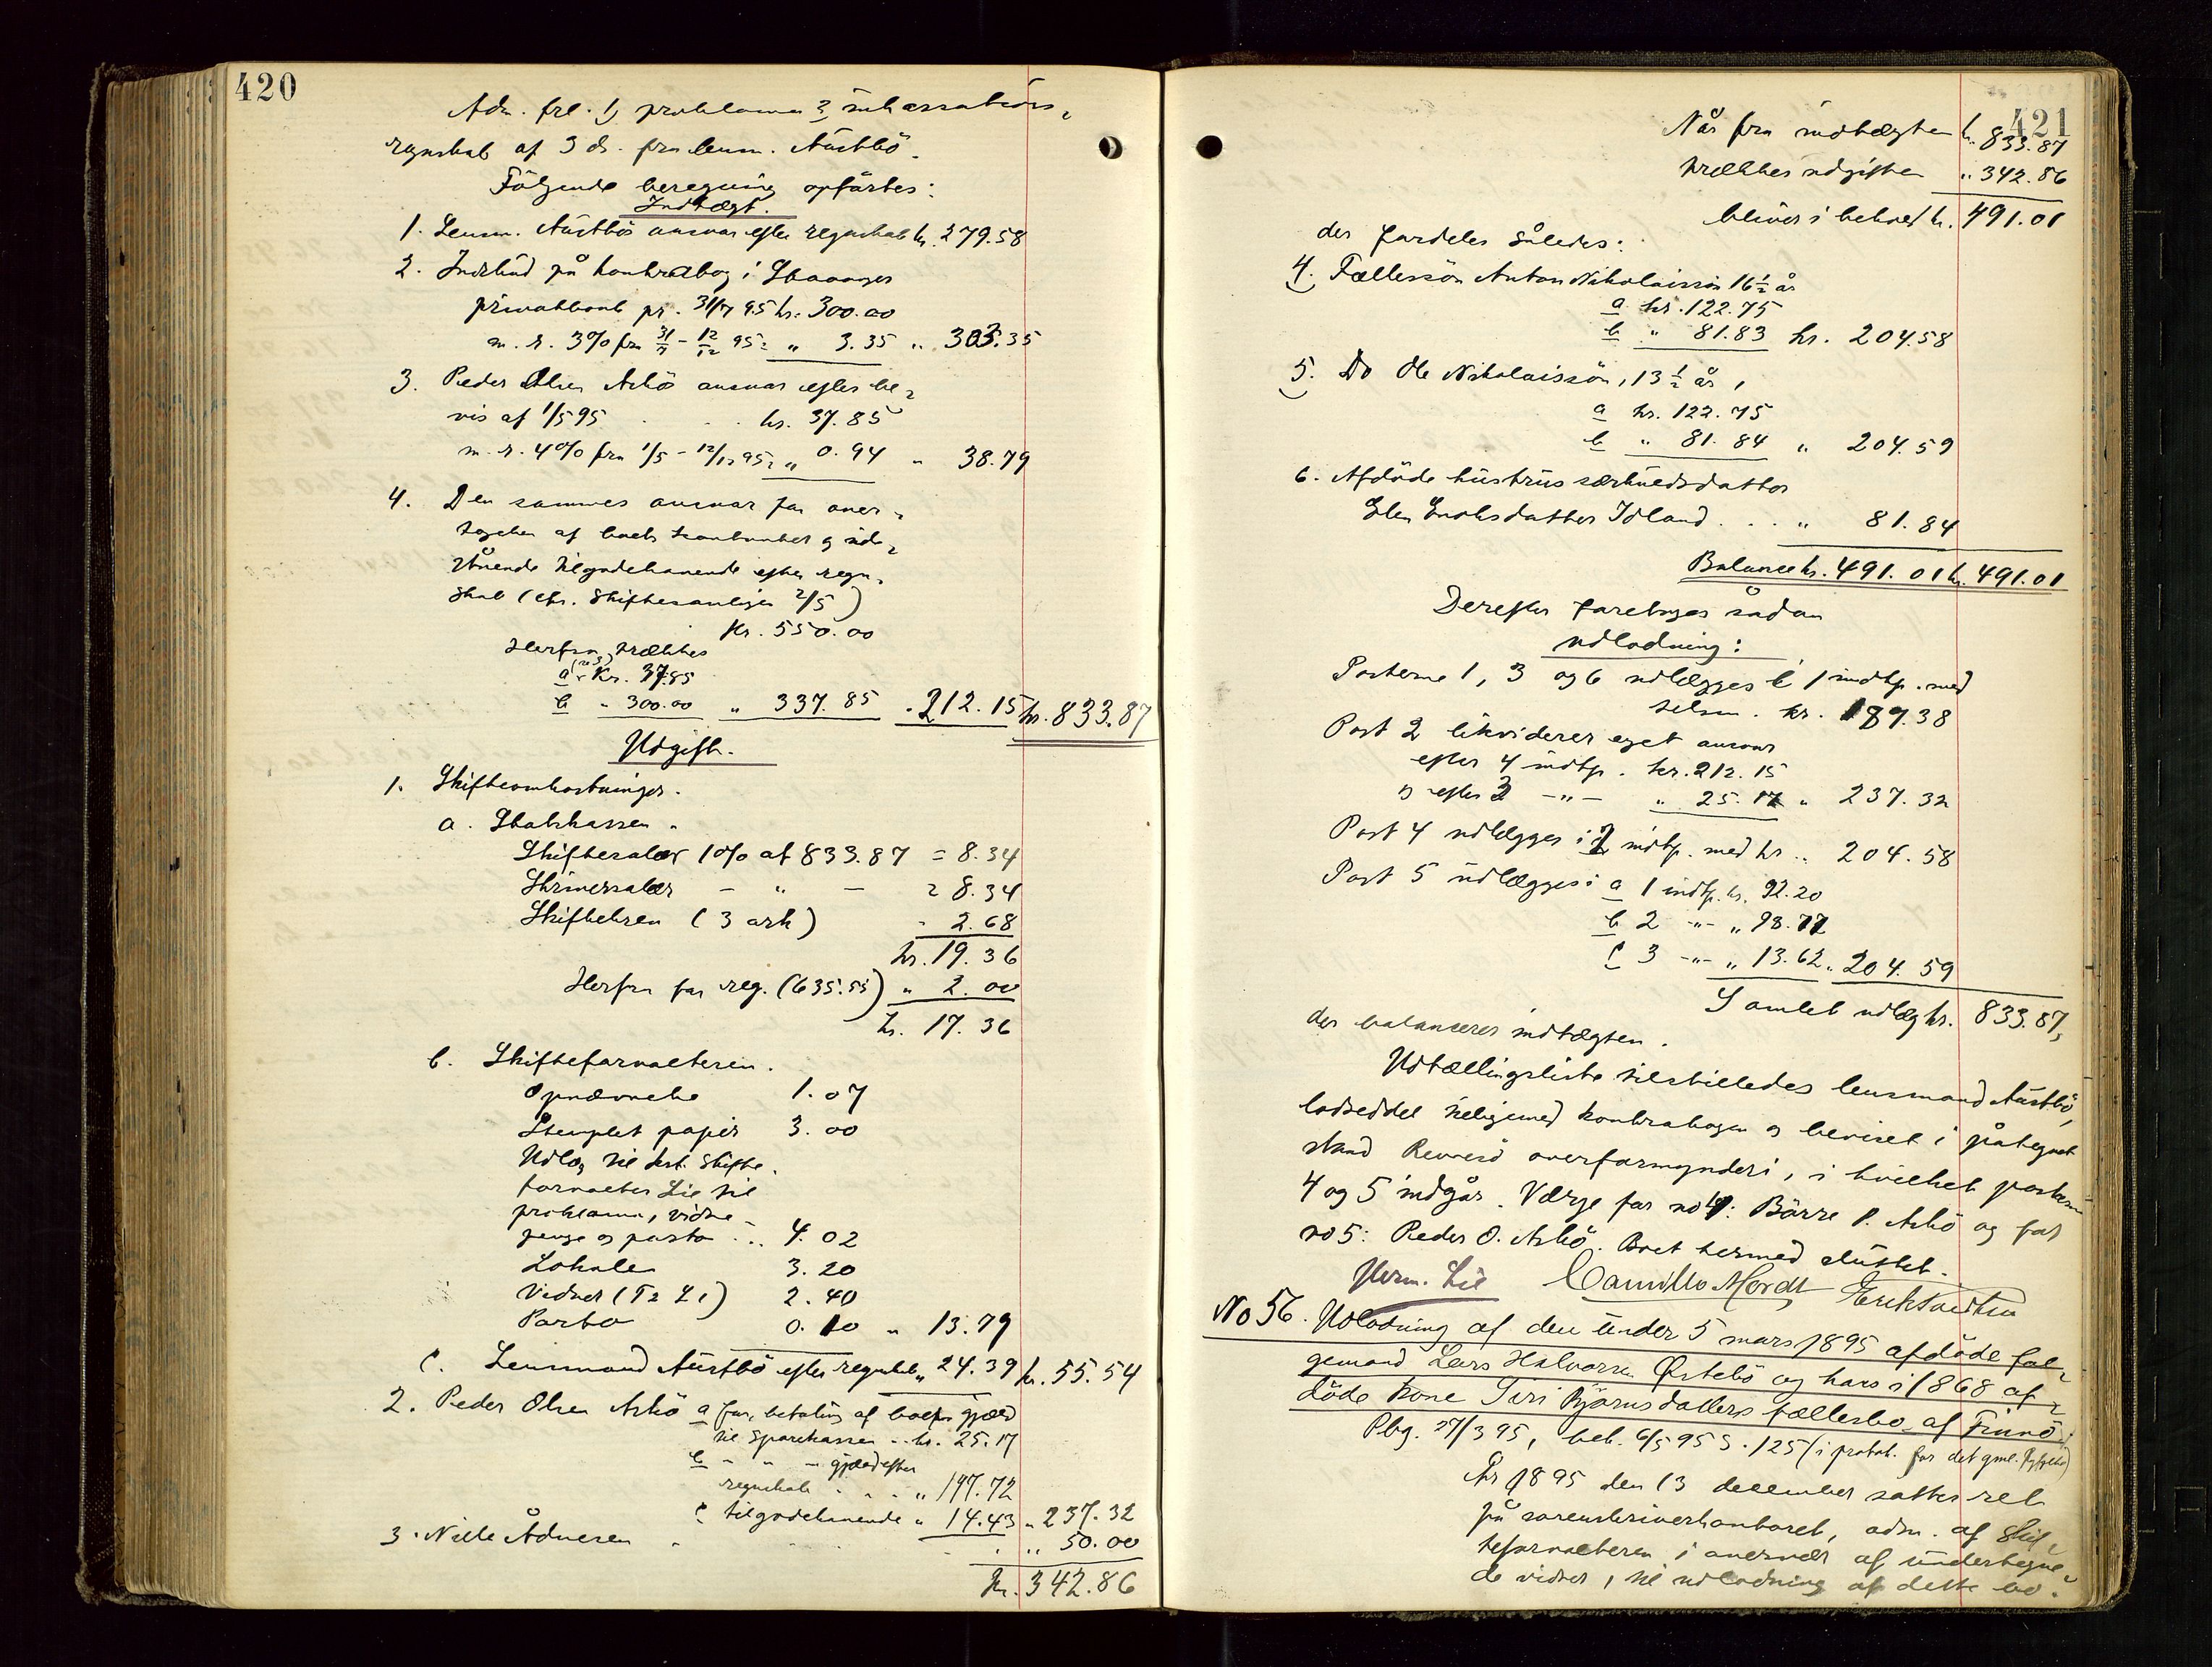 420
Adm. frl. 1, proklama 2, inkassations-
regnskab af 3 ds. fra lensm. Austbö.
Følgende beregning opførtes:
Indtægt.
1. Lensm. Austbös ansvar efter regnskab kr. 279.58
2. Indskud på kontrabog i Stavanger
privatbank pr. 31/7 95 kr. 300.00
m. r. 3% fra 31/7 - 12/12 95 = " 3.35 " 303.35
3. Peder Olsen Askö ansvar efter be-
vis af 1/5 95 . . . kr. 37.85
m. r. 4% fra 1/5 - 12/12 95 = " 0.94 " 38.79
4. Den sammes ansvar for over-
tagelsen af boets og ude-
stående tilgodehavende efter regn-
skab (cfr. Skiftesamlingen 2/5)
Kr. 550.00
Herfra trækkes
(no 3)
a. Kr. 37.85
b " 300.00 " 337.85 " 212.15 kr. 833.87
Udgift.
1. Skifteomkostninger.
a. Statskassen.
Skiftesalær 1% af 833.87 = 8.34
Skriversalær - " - = 8.34
Skiftebrev (3 ark) - 2.68
kr. 19.36
Herfra for reg. (635.55) " 2.00
kr. 17.36
b. Skifteforvalteren.
Opnævnelse 1.07
Stemplet papir 3.00
Udlæg til kst. skifte-
forvalter Lie til
proklama, vidne-
penge og porto . . . 4.02
Lokale 3.20
Vidner (T2 L1) 2.40
Porto 0.10 " 13.79
c. Lensmand Austbö efter regnskab " 24.39 kr. 55.54
2. Peder Olsen Askö a for betaling af boets gjæld
til Sparekassen . . kr. 25.17
b - " - gjæld efter
regnskab . . . " 197.72
c tilgodehavende " 14.43 " 237.32
3. Nille Ådnesen . . . " 50.00
Kr. 342.86
421
Når fra indtægten kr. 833.87
trækkes udgiften " 342.86
bliver i behold kr. 491.01
der fordeles således:
4. Fællessön Anton Nikolaissön 16 ½ år
a kr. 122.75
b " 81.83 kr. 204.58
5. Do Ole Nikolaissön, 13 ½ år,
a kr. 122.75
b " 81.84 " 204.59
6. Afdöde hustrus særkuldsdatter
Elen Enoksdatter Idland . . . " 81.84
Balance kr. 491.01 kr. 491.01
Derefter foretoges sådan
udlodning:
Posterne 1, 3 og 6 udlægges i 1 indtp. med
tilsm. kr. 187.38
Post 2 likviderer eget ansvar
efter 4 indtp. kr. 212.15
og efter 3 -"- " 25.17 " 237.32
Post 4 udlægges i 2 indtp. med kr. " 204.58
Post 5 udlægges i a 1 indtp. kr. 92.20
b 2 -"- " 98.77
c 3 -"- " 13.62 " 204.59
Samlet udlæg kr. 833.87,
der balanserer indtægten.
Udtællingsliste tilstilledes lensmand Austbö,
lodseddel tilligemed kontrabogen og beviset i påtegnet
stand Rennesö overformynderi, i hvilket posterne
4 og 5 indgår. Værge for no 4: Börre P. Askö og for
no 5: Peder O. Askö. Boet hermed sluttet.
Herm. Lie Camillo Mordt Erik Knudsen
No 56. Udlodning af den under 5 mars 1895 afdöde föl-
gemand Lars Halvorsen Østebö og hans i 1868 af-
döde kone Siri Bjørnsdatters fællesbo af Finnö.
Pbg. 27/3 95, beh. 6/5 95 S. 125 (i protok. for det gml. )
År 1895 den 13 december sattes ret
på sorenskriverkontoret, adm. af skif-
teforvalteren i overvær af undertegne-
de vidner, til udlodning af dette bo.